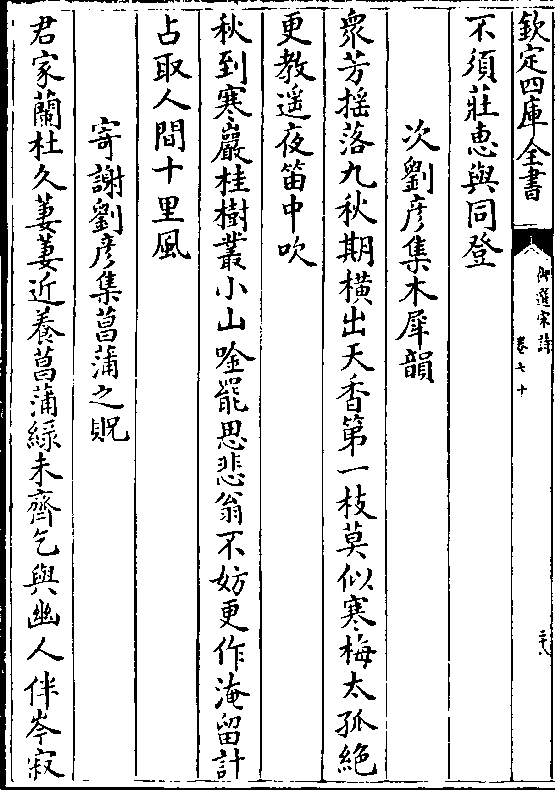 欽定四庫全書
御選宋詩
卷七十
不須莊惠與同登
次劉彦集木犀韻
衆芳揺落九秋期横出天香第一枝莫似寒梅太孤絶
更教遥夜笛中吹
秋到寒巖桂樹叢小山唫罷思悲翁不妨更作淹留計
占取人間十里風
寄謝劉彦集菖蒲之貺
君家蘭杜久萋萋近養菖蒲緑未齊乞與幽人伴岑寂